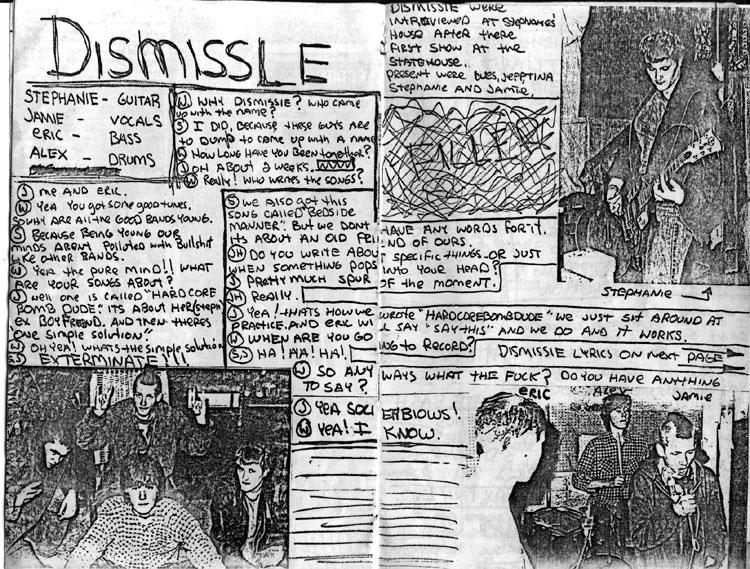 DISMISSLE
STEPHANIE - GUITAR
JAMIE - VOCALS
ERIC - BASS
ALEX - DRUMS
W WHY DISMISSIE? WHO CAME
UP WITH THE NAME?
S I DID, BECAUSE THESE GUYS ARE
TO DUMB TO COME UP WITH A NAME
W HOW LONG HAVE YOU BEEN TOGETHER?
J OH ABOUT 2 WEEKS.
W REALLY! WHO WRITES THE SONGS?
J ME AND ERIC.
W YEA YOU GOT SOME GOOD TUNES.
SO WHY ARE ALL THE GOOD BANDS YOUNG.
S BECAUSE BEING YOUNG OUR
MINDS ARENT POLLUTED WITH BULLSHIT
LIKE OTHER BANDS.
W YEA THE PURE MIND!! WHAT
ARE YOUR SONGS ABOUT?
J WELL ONE IS CALLED "HARDCORE
BOMB DUDE" ITS ABOUT HER (STEPH)
EX BOYFRIEND. AND THEN THERES
"ONE SIMPLE SOLUTION"
W OH YEA! WHATS THE SIMPLE SOLUTION
J EXTERMINATE!!!
DISMISSIE WERE
INTERVIEWED AT STEPHANIES'
HOUSE AFTER THERE
FIRST SHOW AT THE
STATEHOUSE.
PRESENT WERE WES, JEFF, TINA
STEPHANIE AND JAMIE.
FILLER
S WE ALSO GOT THIS
SONG CALLED "BEDSIDE
MANNER". BUT WE DONT HAVE ANY WORDS FOR IT.
ITS ABOUT AN OLD FRIEND OF OURS.
JH DO YOU WRITE ABOUT SPECIFIC THINGS OR JUST
WHEN SOMETHING POPS INTO YOUR HEAD?
S PRETTY MUCH SPUR OF THE MOMENT.
JH REALLY.
J YEA! THATS HOW WE WROTE "HARDCOREBOMBDUDE" WE JUST SIT AROUND AT
PRACTICE. AND ERIC WILL SAY "SAY THIS" AND WE DO AND IT WORKS.
W WHEN ARE YOU GOING TO RECORD?
S,J HA! HA! HA!
DISMISSIE LYRICS ON NEXT PAGE
W SO ANYWAYS WHAT THE FUCK? DO YOU HAVE ANYTHING
TO SAY?
J YEA SOCI
W YEA! I KNOW.
STEPHANIE
ERIC
ALEX
JAMIE